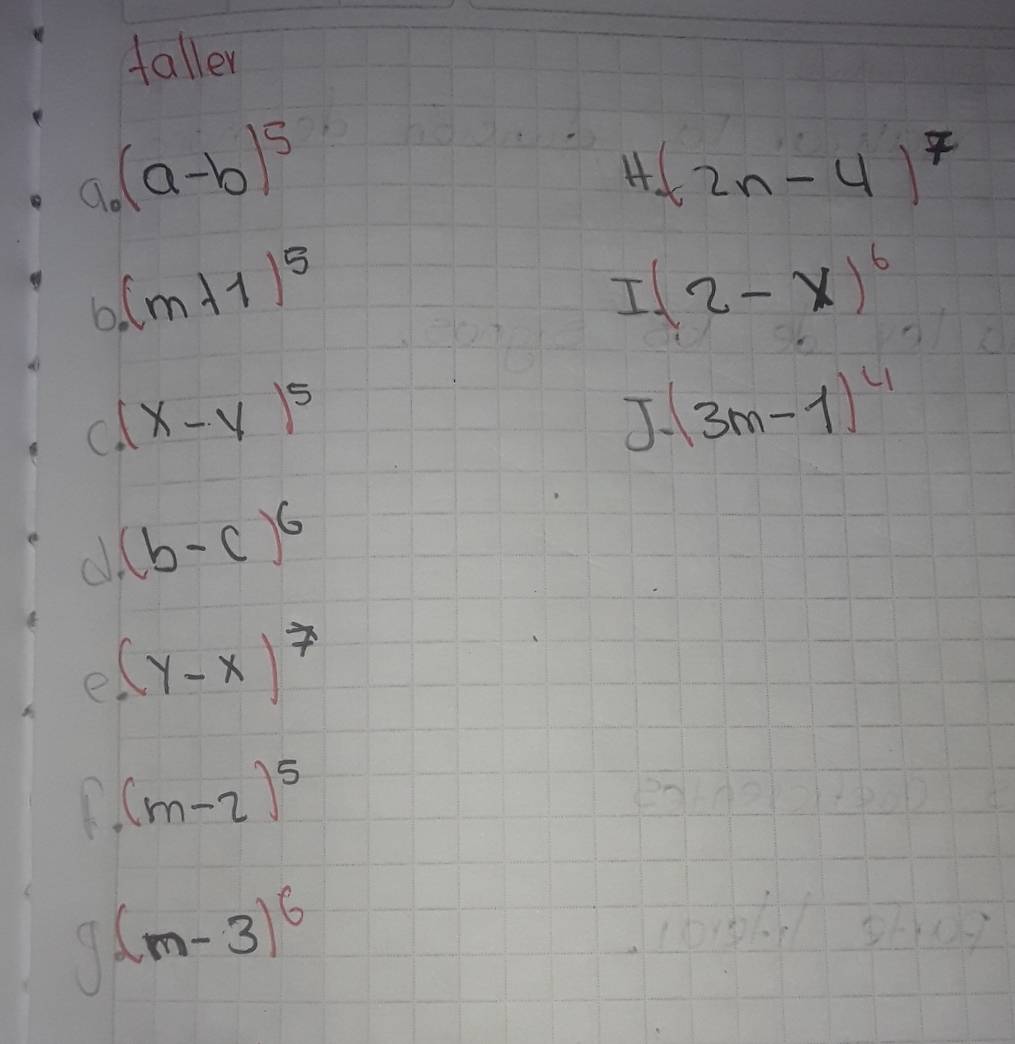 taller
a. (a-b)^5
b. (m+1)^5
c. (x-y)^5
d. (b-c)^6
e. (y-x)^7
f. (m-2)^5
g. (m-3)^6
H. (2n-4)^7
I. (2-x)^6
J. (3m-1)^4